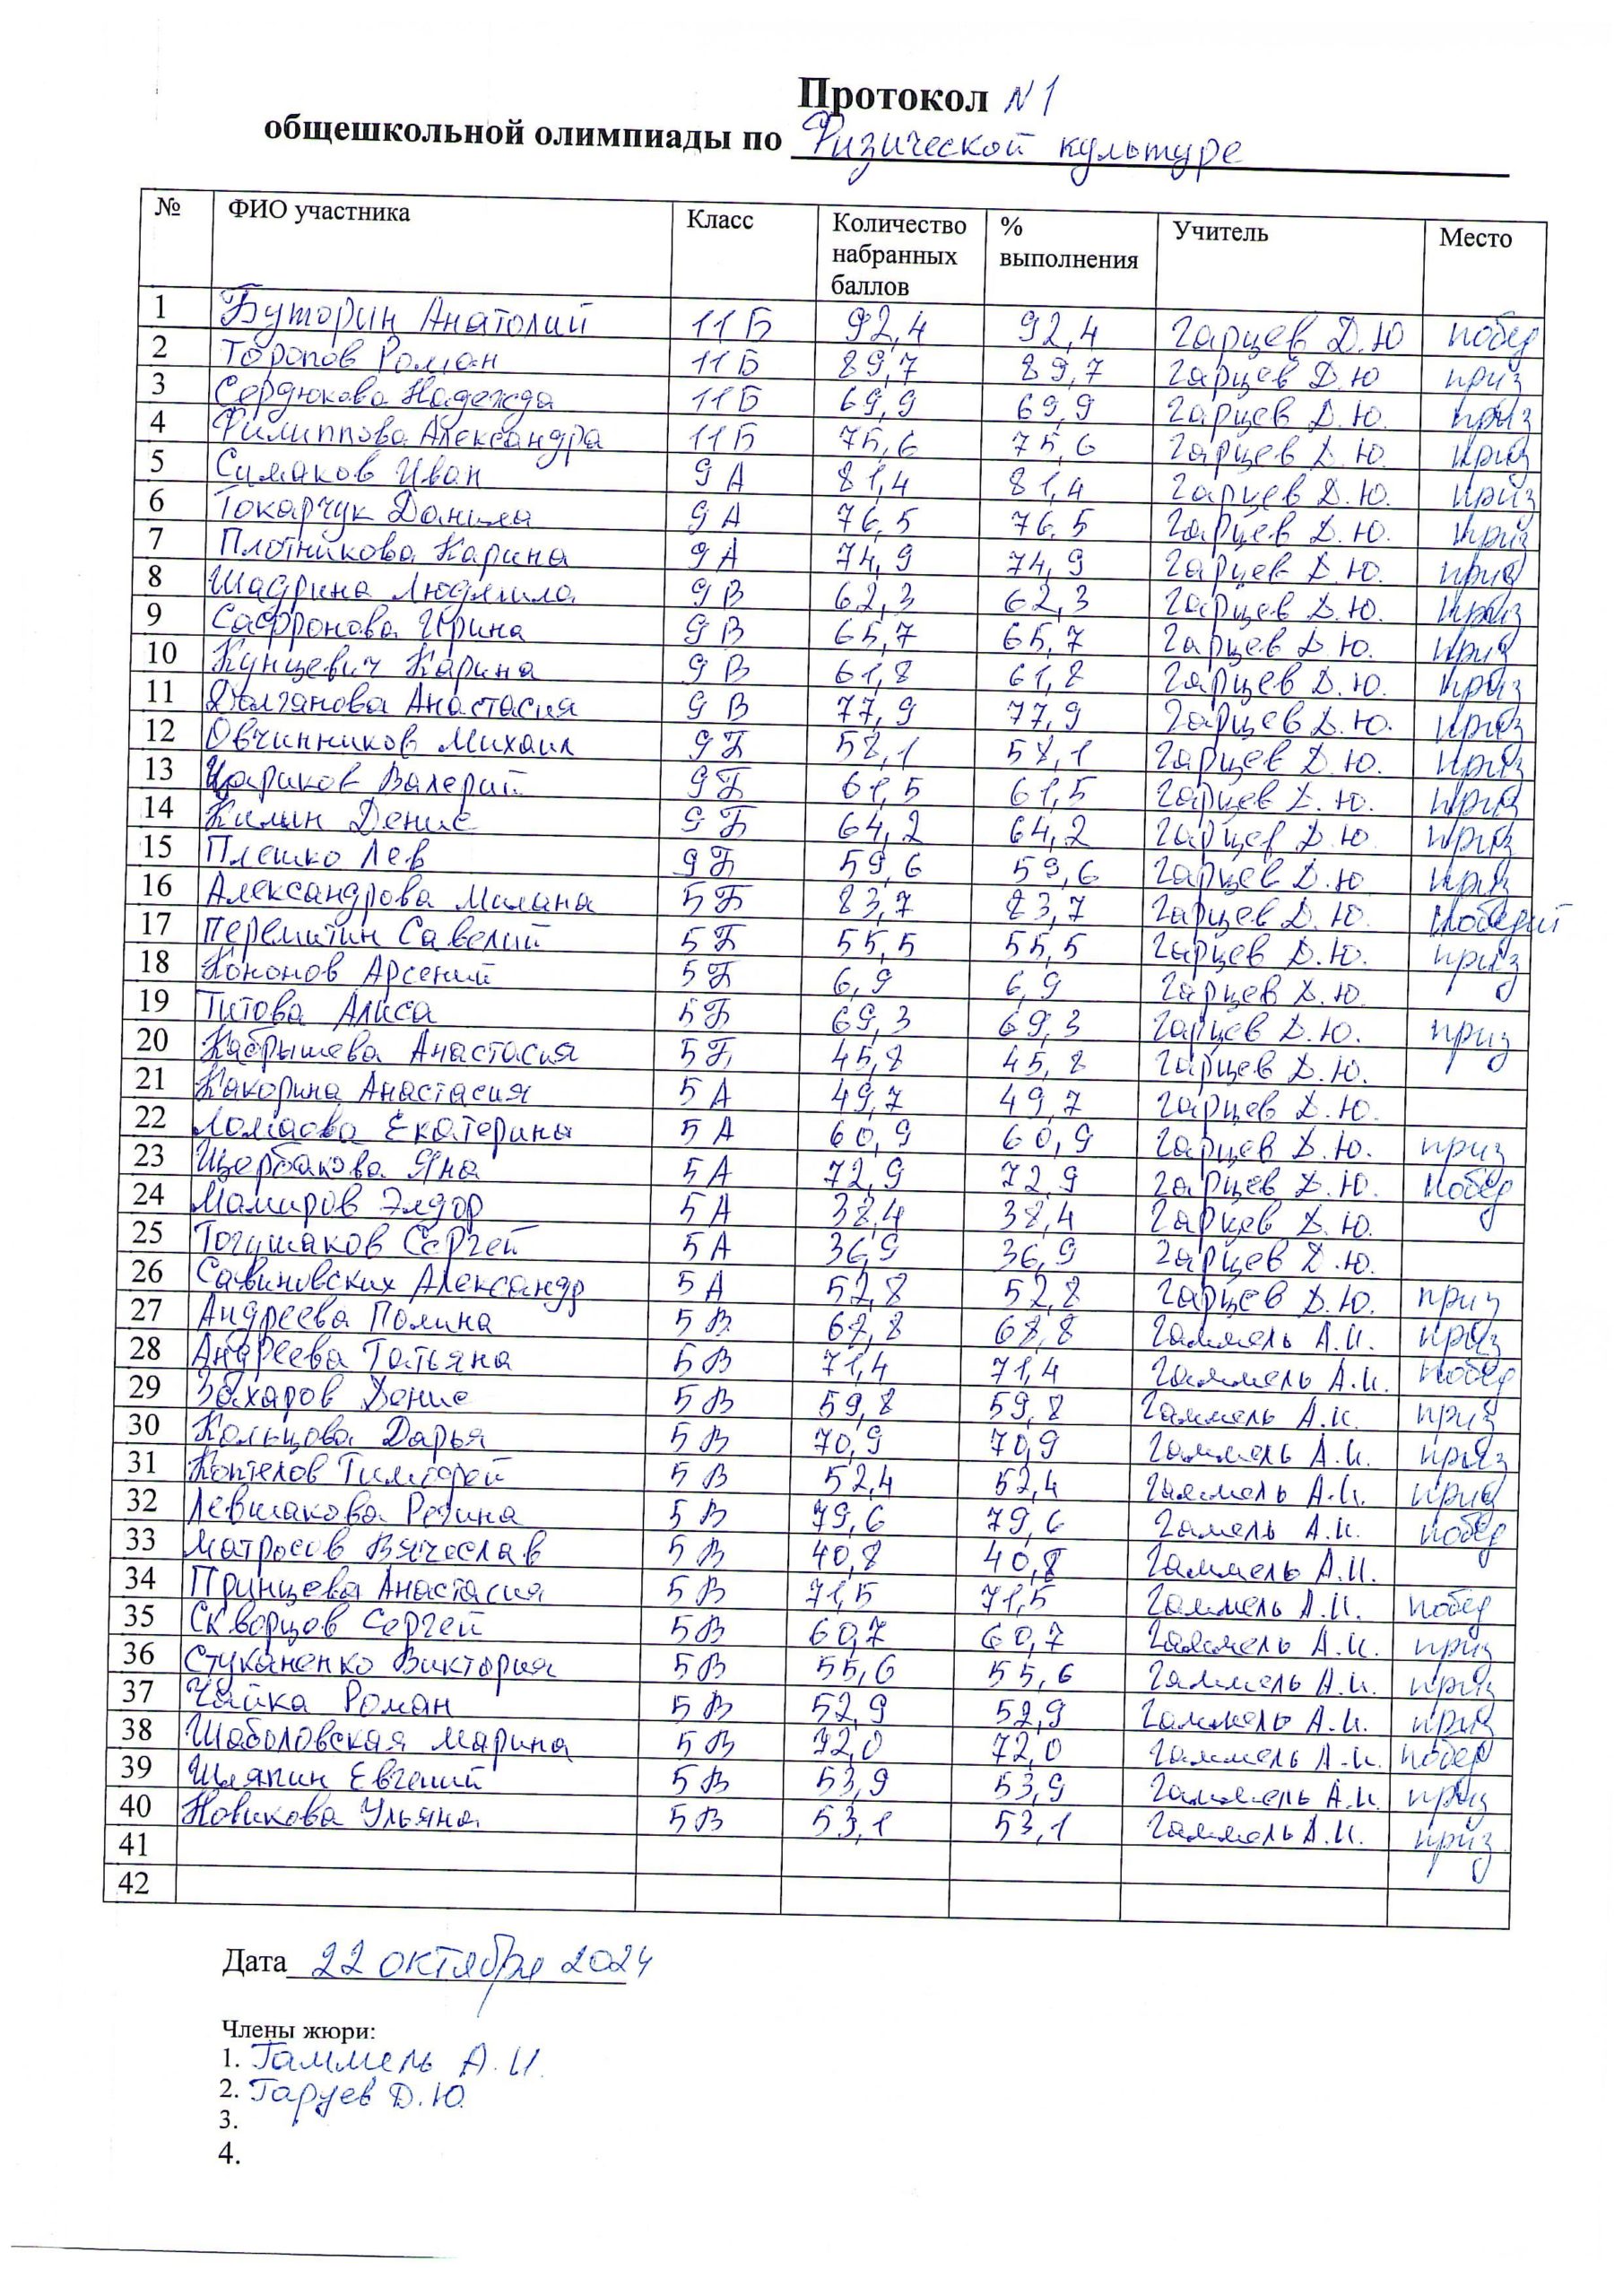 Протокол №1
общешкольной олимпиады по Физической культуре
№ ФИО участника Класс Количество набранных баллов % выполнения Учитель Место
1 Буторин Анатолий 11Б 92,4 92,4 Гарцев Д.Ю побед
2 Торопов Роман 11Б 89,7 89,7 Гарцев Д.Ю приз
3 Сердюкова Надежда 11Б 69,9 69,9 Гарцев Д.Ю. приз
4 Филиппова Александра 11Б 75,6 75,6 Гарцев Д.Ю. приз
5 Симаков Иван 9А 81,4 81,4 Гарцев Д.Ю. приз
6 Токарчук Данила 9А 76,5 76,5 Гарцев Д.Ю. приз
7 Плотникова Карина 9А 74,9 74,9 Гарцев Д.Ю. приз
8 Шадрина Людмила 9В 62,3 62,3 Гарцев Д.Ю. приз
9 Сафронова Ирина 9В 65,7 65,7 Гарцев Д.Ю. приз
10 Кунцевич Карина 9В 61,8 61,8 Гарцев Д.Ю. приз
11 Долганова Анастасия 9В 77,9 77,9 Гарцев Д.Ю. приз
12 Овчинников Михаил 9Б 58,1 58,1 Гарцев Д.Ю. приз
13 Цариков Валерий 9Б 61,5 61,5 Гарцев Д.Ю. приз
14 Килин Денис 9Б 64,2 64,2 Гарцев Д.Ю приз
15 Плешко Лев 9Б 59,6 59,6 Гарцев Д.Ю приз
16 Александрова Милана 5Б 83,7 83,7 Гарцев Д.Ю. победит
17 Перемитин Савелий 5Б 55,5 55,5 Гарцев Д.Ю. приз
18 Кононов Арсений 5Б 6,9 6,9 Гарцев Д.Ю.
19 Титова Алиса 5Б 69,3 69,3 Гарцев Д.Ю. приз
20 Кабрышева Анастасия 5Б 45,8 45,8 Гарцев Д.Ю.
21 Какорина Анастасия 5А 49,7 49,7 Гарцев Д.Ю.
22 Екатерина 5А 60,9 60,9 Гарцев Д.Ю. приз
23 Щербакова Яна 5А 72,9 72,9 Гарцев Д.Ю. побед
24 Мамиров Элдор 5А 38,4 38,4 Гарцев Д.Ю.
25 Тогушаков Сергей 5А 36,9 36,9 Гарцев Д.Ю.
26 Савиновских Александр 5А 52,8 52,8 Гарцев Д.Ю. приз
27 Андреева Полина 5В 68,8 Гаммель А.И. приз
28 Андреева Татьяна 5В 71,4 71,4 Гаммель А.И. побед
29 Захаров Денис 5В 59,8 59,8 Гаммель А.И. приз
30 Кольцова Дарья 5В 70,9 70,9 Гаммель А.И. приз
31 Коптелов Тимофей 5В 52,4 52,4 Гаммель А.И. приз
32 Левшакова Регина 5В 79,6 79,6 Гамель А.И. побед
33 Матросов Вячеслав 5В 40,8 40,8 Гаммель А.И.
34 Принцева Анастасия 5В 71,5 71,5 Гаммель А.И. побед
35 Скворцов Сергей 5В 60,7 60,7 Гаммель А.И. приз
36 Стуканенко Виктория 5В 55,6 55,6 Гаммель А.И. приз
37 Чайка Роман 5В 52,9 52,9 Гаммель А.И. приз
38 Шаболовская Марина 5В 72,0 72,0 Гаммель А.И. побед
39 Шляпин Евгений 5В 53,9 53,9 Гаммель А.И. приз
40 Новикова Ульяна 5В 53,1 53,1 Гаммель А.И. приз
41
42
Дата 22 октября 2024
Члены жюри:
1. Гаммель А.И.
2. Гарцев Д.Ю.
3.
4.